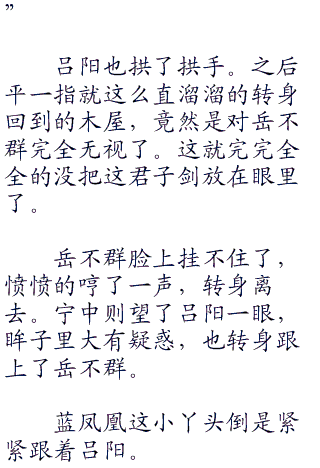 ”
吕阳也拱了拱手。之后
平一指就这么直溜溜的转身
回到的木屋，竟然是对岳不
群完全无视了。这就完完全
全的没把这君子剑放在眼里
了。
岳不群脸上挂不住了，
愤愤的哼了一声，转身离
去。宁中则望了吕阳一眼，
眸子里大有疑惑，也转身跟
上了岳不群。
蓝凤凰这小丫头倒是紧
紧跟着吕阳。